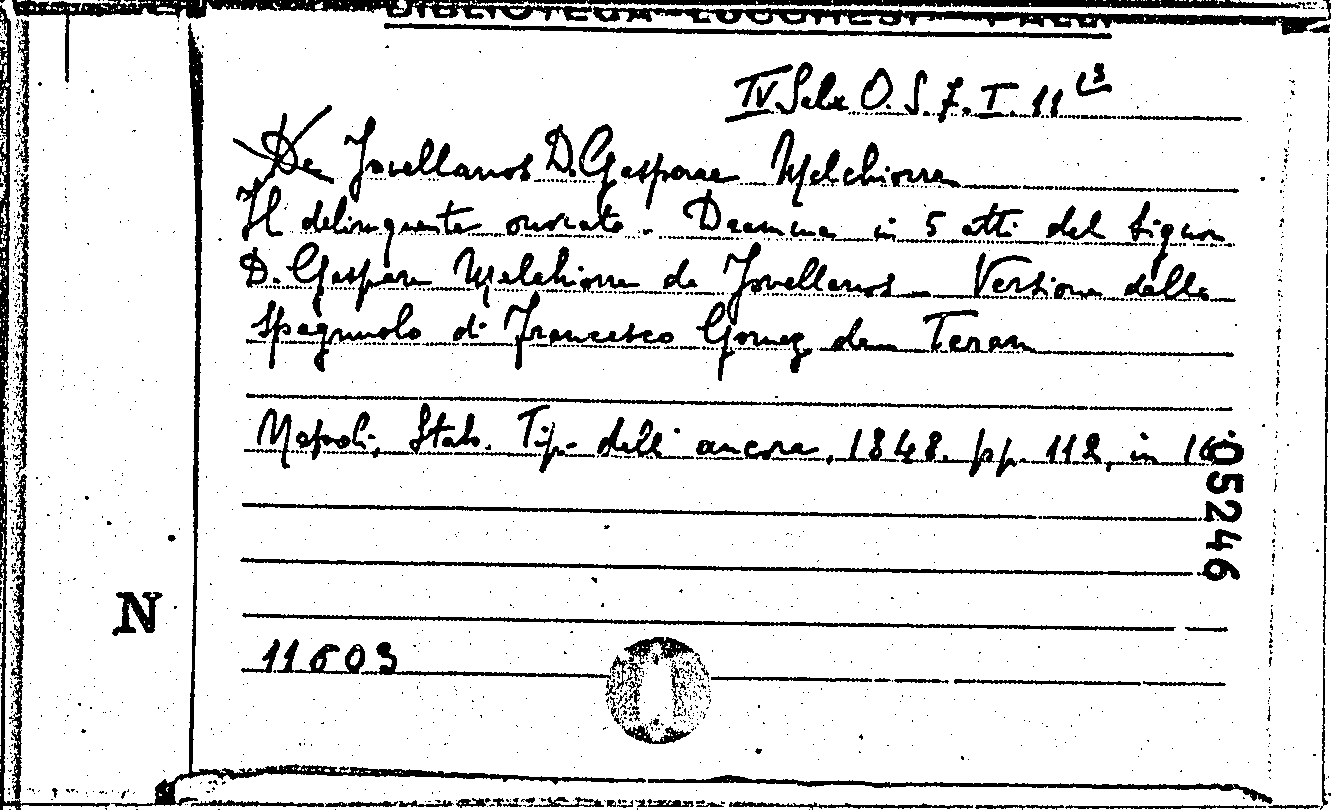 BIBLIOTECA LUCCHESI - PALLI
IV Sala O. S. 7. I. 11 13
De Jovellanos D. Gaspare Melchiorre
Il delinquente onorato. Dramma in 5 atti del Signor
D. Gaspare Melchiorre de Jovellanos - Versione dallo
spagnuolo di Francesco Gomez de Teran
Napoli, Stab. Tip. dell'ancora, 1848. pp. 112, in 16°
05246
N
11603